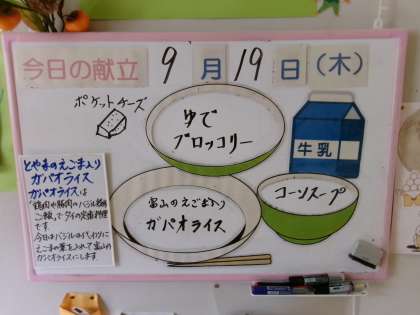 今日の献立 9月19日(木)
ポケットチーズ
ゆで
ブロッコリー
牛乳
富山のえごま入り
ガパオライス
コーンスープ
とやまのえごま入り
ガパオライス
ガパオライスは
ご飯」で タイの定番料理
です。
今日はバジルの代わりに
えごまの葉を入れて富山の
ガパオライスにします